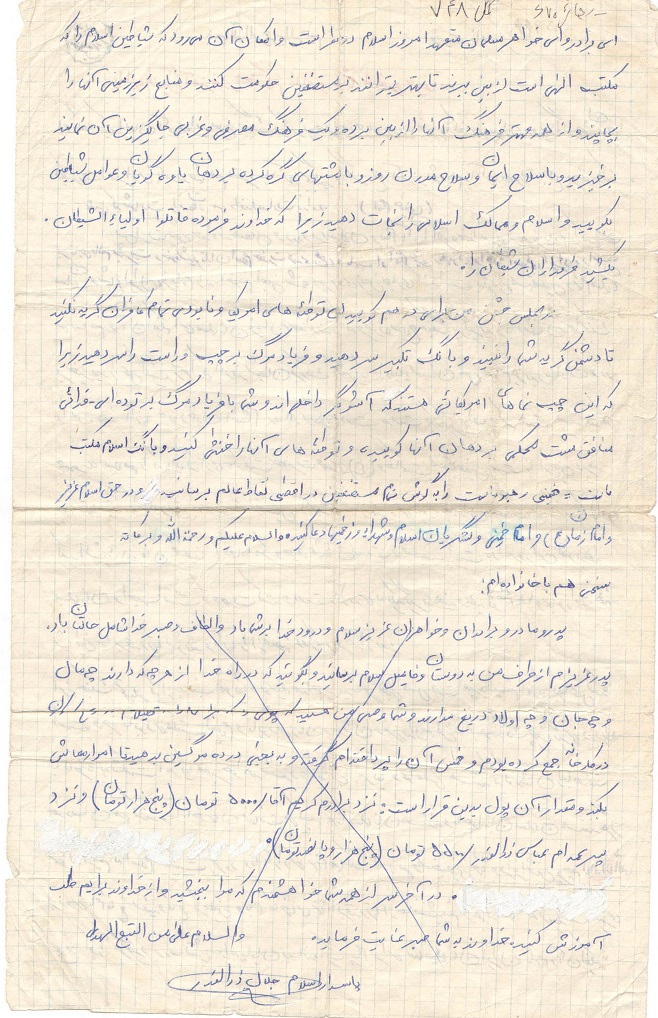 کل ۷۴۸
ای برادر و ای خواهر مسلمان متعهد امروز اسلام در خطر است و امکان آن می رود که شیاطین اسلام را که
مکتب الهی است از بین ببرند تا بهتر بتوانند بر مستضعفین حکومت کنند و منابع زیرزمینی آنها را
بچاپند و از همه مهمتر فرهنگ آنها را از بین برده و یک فرهنگ مصرفی و غربی جایگزین آن نمایند
برخیزید و با سلاح ایمان و سلاح مدرن روز و با مشتهای گره کرده بر دهان یاوه گویان و عوامل شیاطین
بکوبید و اسلام و ممالک اسلامی را نجات دهید زیرا که خداوند فرموده قاتلوا اولیاء الشیطان .
بکشید طرفداران شیطان را .
در مجلس ختم من برای در هم کوبیدن توطئه های امریکا و نابودی تمام کافران گریه نکنید
تا دشمن گریه شما را نبیند و با بانگ تکبیر سر دهید و فریاد مرگ بر چپ و راست را سر دهید زیرا
که این چپ نماهای امریکائی هستند که آتشگر داخلی اند و شما با فریاد مرگ بر توده ای - فدائی
منافق مشت محکمی بر دهان آنها کوبیده و توطئه های آنها را خنثی کنید و بانگ اسلام مکتب
ماست خمینی رهبر ماست را به گوش تمام مستضعفین در اقصی نقاط عالم برسانید و در حق اسلام عزیز
و امام زمان (عج) و امام خمینی و لشگریان اسلام و شهدا و رزمندگان دعا کنید والسلام علیکم و رحمة الله و برکاته
سخنی هم با خانواده ام:
پدر و مادر و برادران و خواهران عزیز سلام و درود خدا بر شما باد و الطاف و صبر خدا شامل حالتان باد.
پدر عزیزم از طرف من به دوستان و فامیل سلام برسانید و بگوئید که در راه خدا از هر چه که دارند چه مال
و چه جان و چه اولاد دریغ مدارند و شما وصی من هستید که پولی را که برای
درگذشت جمع کرده بودم و خمس آن را پرداخته ام گرفته و به
بکند و مقدار آن پول بدین قرار است: نزد برادرم کریم آقا ۵۰۰۰ تومان (پنج هزار تومان) و نزد
پسر عمه ام عباس ذوالقدر ۵۵۰۰ تومان (پنج هزار و پانصد تومان).
در آخر من از همه شما خواهشمندم که مرا ببخشید و از خداوند برایم طلب
آمرزش کنید. خداوند به شما صبر عنایت فرماید. والسلام علی من اتبع الهدی
پاسدار اسلام جلال ذوالقدر